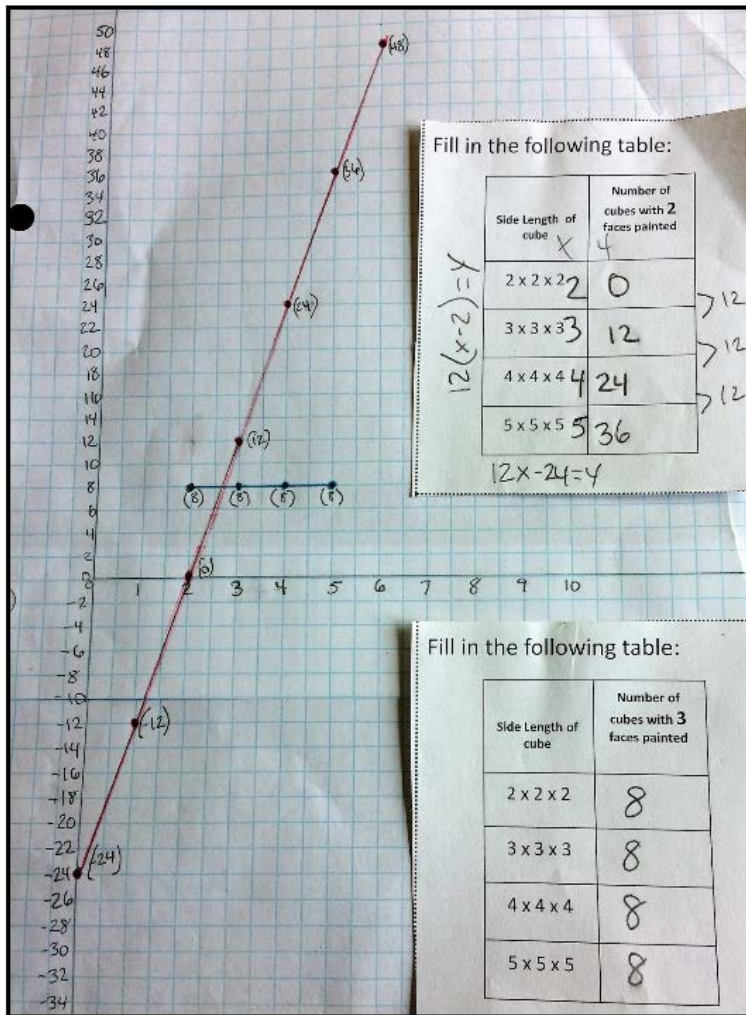 50
48
46
44
42
40
38
36
34
32
30
28
26
24
22
20
18
16
14
12
10
8
6
4
2
0
-2
-4
-6
-8
-10
-12
-14
-16
-18
-20
-22
-24
-26
-28
-30
-32
-34
1 2 3 4 5 6 7 8 9 10
(48)
(36)
(24)
(12)
(8) (8) (8) (8)
(0)
(-12)
(-24)
Fill in the following table:
Side Length of
cube X
Number of
cubes with 2
faces painted
Y
2 x 2 x 2 2 0
3 x 3 x 3 3 12
4 x 4 x 4 4 24
5 x 5 x 5 5 36
12
12
12
12(x-2)=Y
12x-24=Y
Fill in the following table:
Side Length of
cube
Number of
cubes with 3
faces painted
2 x 2 x 2 8
3 x 3 x 3 8
4 x 4 x 4 8
5 x 5 x 5 8